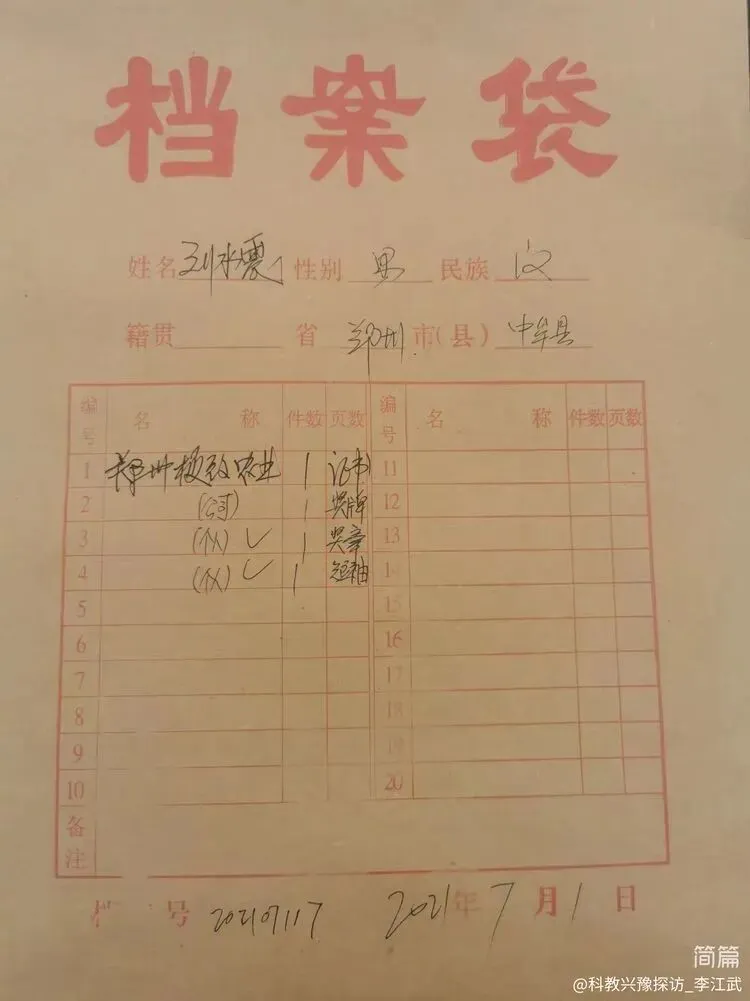 档案袋
姓名 刘水震 性别 男 民族 汉
籍贯 省 郑州 市(县) 中牟县
编号 名称 件数 页数 编号 名称 件数 页数
1 郑州 农业 1 证书 11
2 (公司) 1 奖牌 12
3 (个人) ✓ 1 奖章 13
4 (个人) ✓ 1 短袖 14
5 15
6 16
7 17
8 18
9 19
10 20
备注
档 号 20210117 2021年7月1日
简篇
@科教兴豫探访_李江武